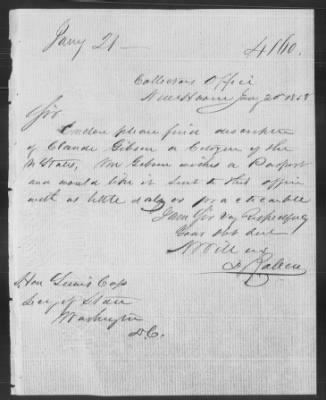 Jany 21
4160.
Collectors Office
New Haven Jany 20 1858
Sir
Enclosed please find description
of Claude Gibson a Citizen of the
U States, Mr Gibson wishes a Passport
and would like it sent to this office
with as little delay as practicable
I am Sir Very Respectfully
Your obt Svt
Hon Lewis Cass
Secy of State
Washington
D.C.